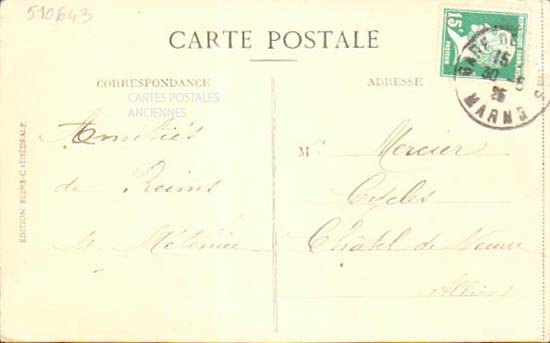 510643
CARTE POSTALE
CORRESPONDANCE
ADRESSE
CARTES POSTALES
ANCIENNES
Amitiés
de Reims
M.
M. Mercier
Cycles
Châtel de Neuvre
Allier
EDITION REIMS-CATHÉDRALE
15c
GARE DE
15
30
25
MARNE